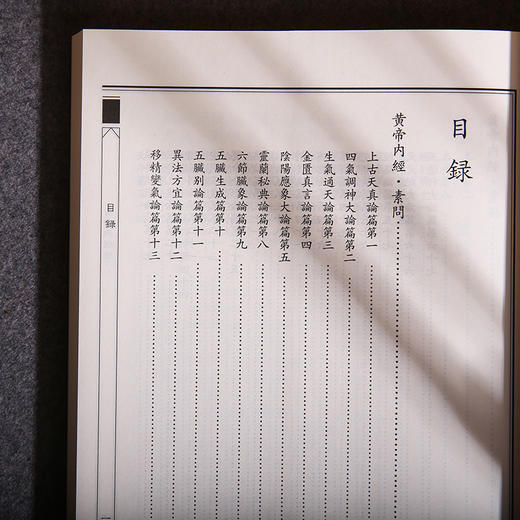 目録
黄帝内經·素問
上古天真論篇第一
四氣調神大論篇第二
生氣通天論篇第三
金匱真言論篇第四
陰陽應象大論篇第五
靈蘭秘典論篇第八
六節臟象論篇第九
五臟生成篇第十
五臟别論篇第十一
異法方宜論篇第十二
移精變氣論篇第十三
目録